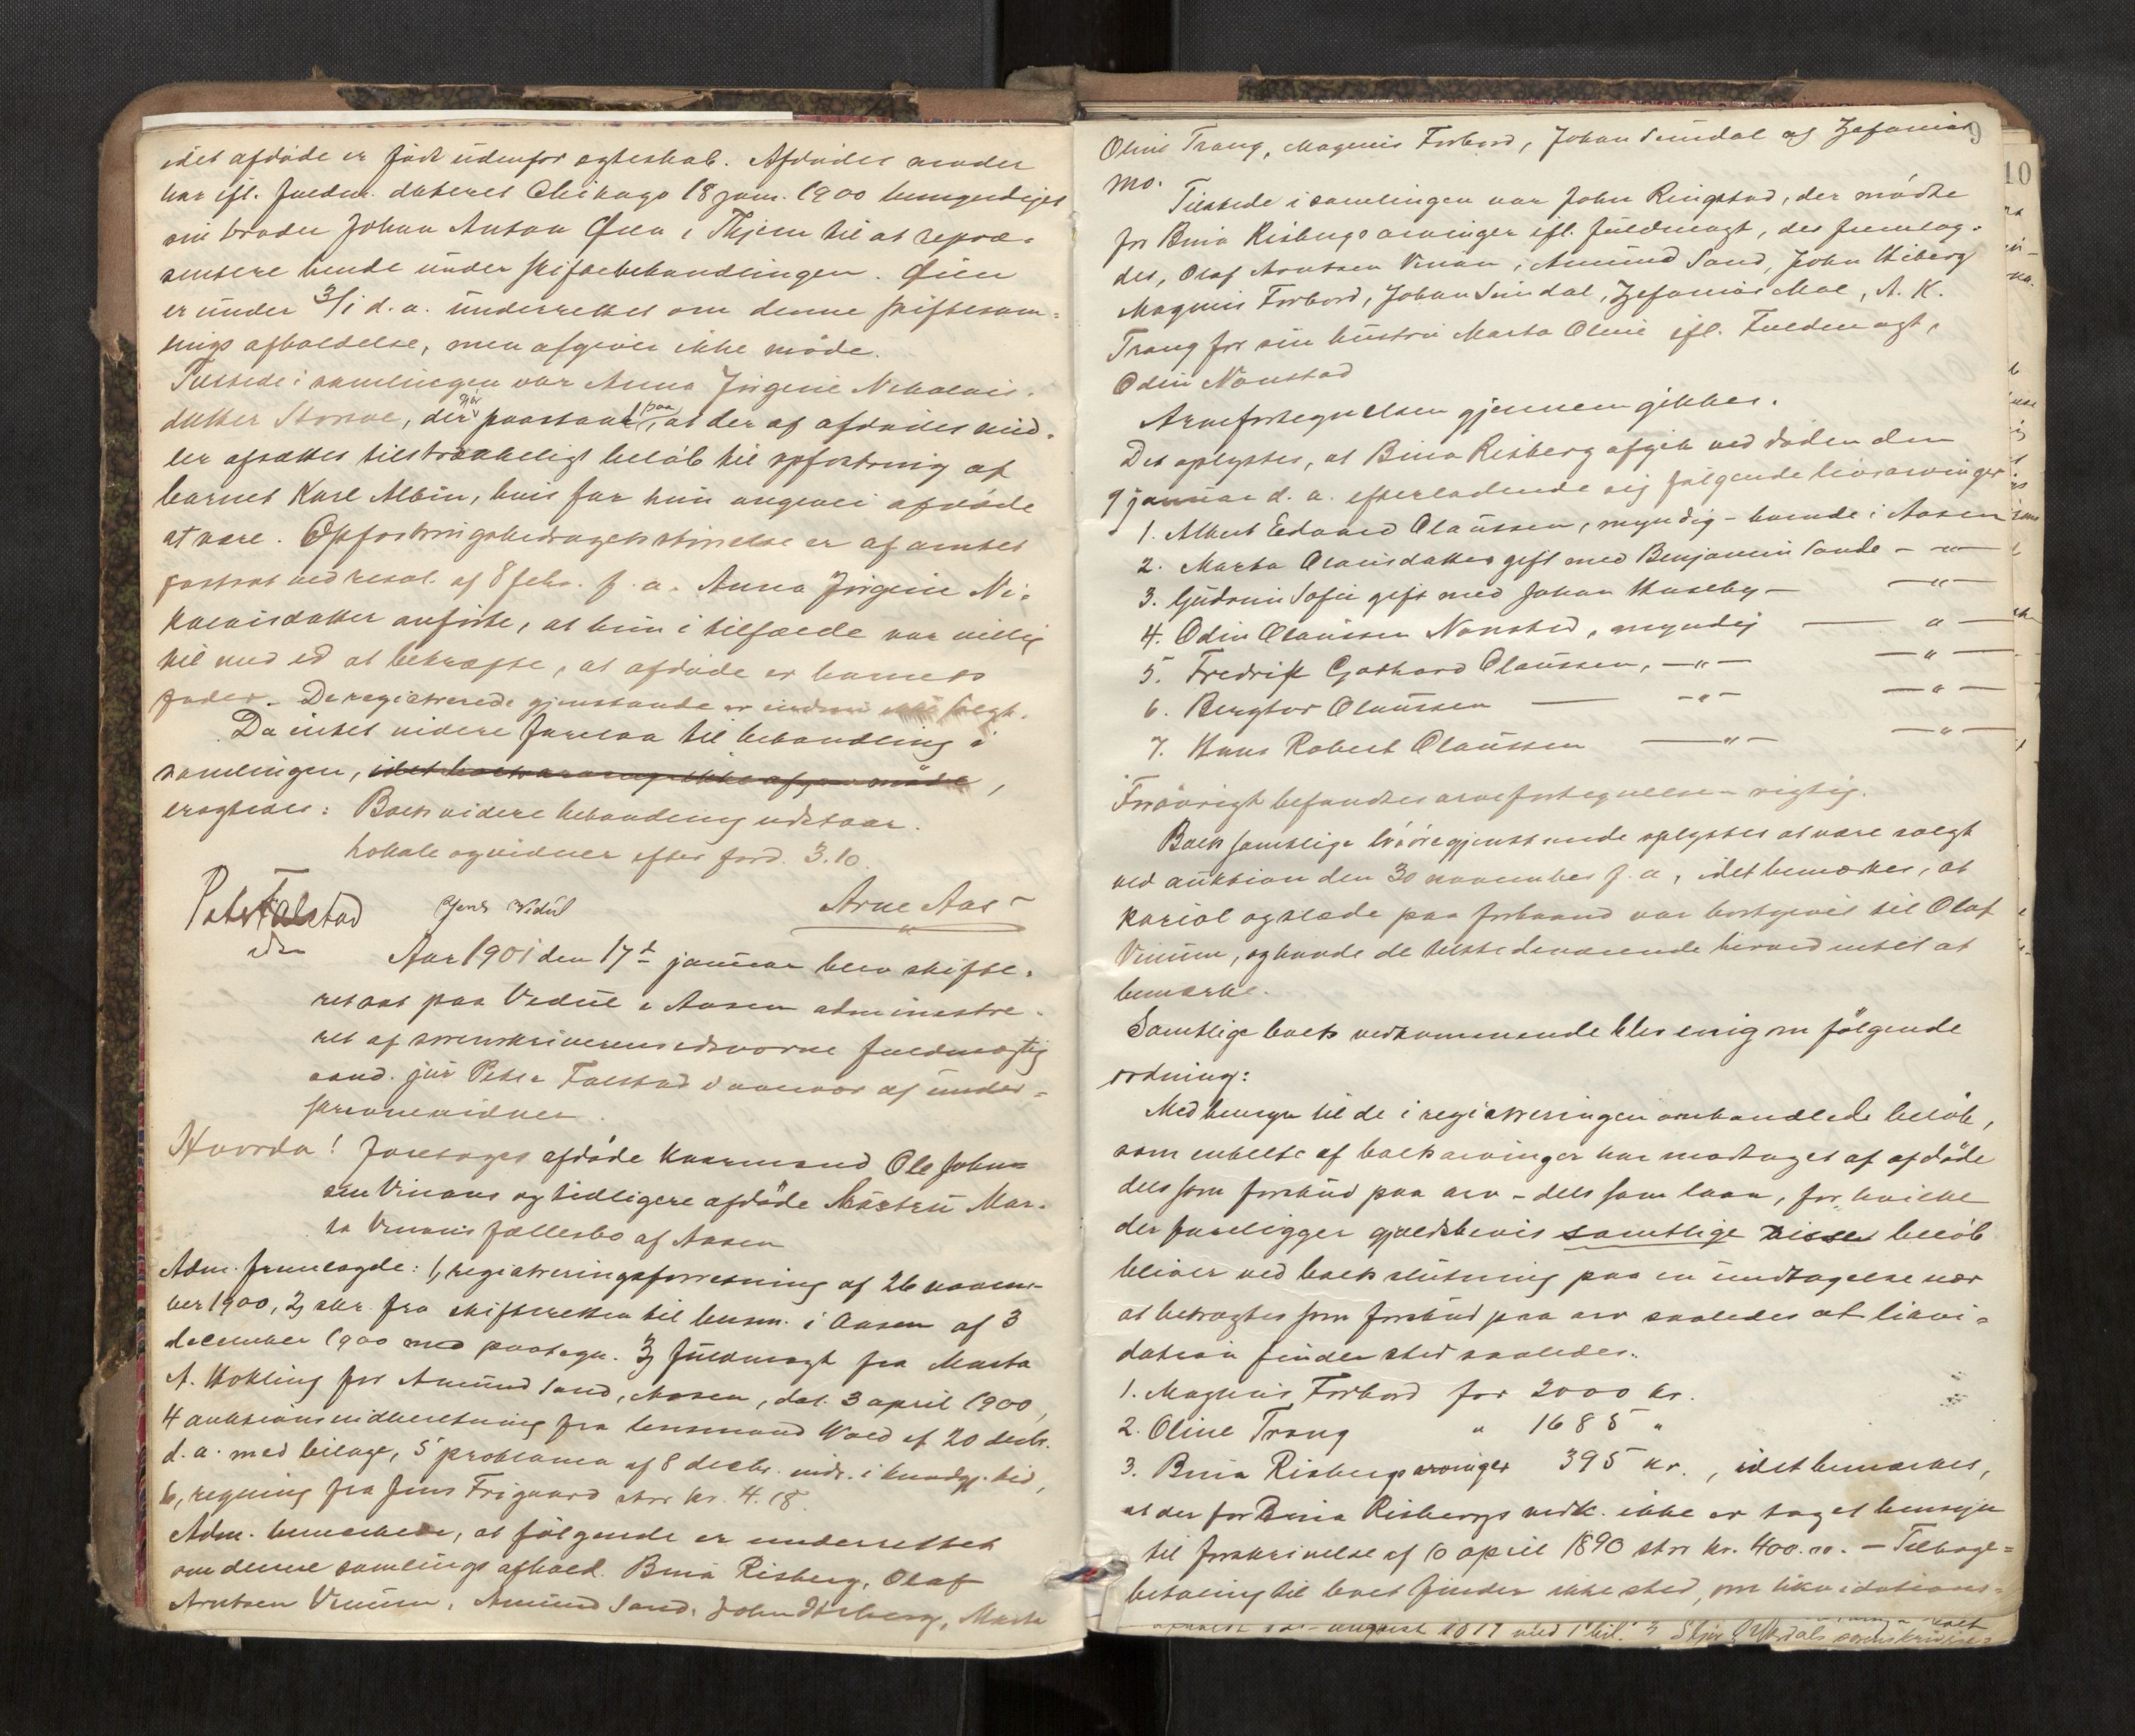 idet afdøde er født udenfor egteskab. Afdødes moder
har ifl. fuldm. dateret Chikago 18 jan. 1900 bemyndiget
sin broder Johan Anton Øien i Thjem til at repræ-
sentere hende under skiftebehandlingen. Øien
er under 3/1 d. a. underrettet om denne skiftesam-
lings afholdelse, men afgiver ikke møde.
Tilstede i samlingen var Anna Jørgine Nikolais-
datter Storvoe, der paastaar, at der af afdødes mid-
ler afsættes tilstrækkeligt beløb til opfostring af
barnet Karl Albin, hvis far hun angiver afdøde
at være. Opfostringsbidragets størrelse er af amtet
fastsat ved resol. af 8 febr. f. a. Anna Jørgine Ni-
kolaisdatter anførte, at hun i tilfælde var villig
til med ed at bekræfte, at afdøde er barnets
fader. De registrerede gjenstande er endnu ikke solgt.
Da intet videre forelaa til behandling i
samlingen, idet boets arving ikke afgav møde,
eragtedes: Boets videre behandling udstaar.
Lokale og vidner efter ford. 3.10.
Peter Falstad Jens Vedul Arne Aas
edsv.
Aar 1901 den 17de januar blev skifte-
ret sat paa Vedul i Aasen administre-
ret af sorenskriverens edsvorne fuldmægtig
cand. jur Peter Falstad i nærvær af under-
skrevne vidner.
Hvorda! Foretoges afdøde kaarmand Ole John-
sen Vinans og tidligere afdøde hustru Mar-
ta Vinans fællesbo af Aasen
Adm. fremlagde: 1, registreringsforretning af 26 novem-
ber 1900, 2, skr. fra skifteretten til lensm. i Aasen af 3
december 1900 med paategn. 3, fuldmagt fra Marta
A. Hokling for Amund Sand, Aasen, dat. 3 april 1900,
4 auktionsindberetning fra lensmand Wold af 20 decbr.
d. a. med bilage, 5 proklama af 8 decbr. indr. i kundgj. tid,
6, regning fra Jens Frigaard stor kr. 4.18.
Adm. bemærkede, at følgende er underrettet
om denne samlings afhold. Bina Risberg, Olaf
Arntsen Vinum, Amund Sand, John Hiberg, Marta
9
Oline Trang, Magnus Forbord, Johan Sundal og Zefanias
Mo.
Tilstede i samlingen var John Ringstad, der mødte
for Bina Risbergs arvinger ifl. fuldmagt, der fremlag-
des, Olaf Arntsen Vinan, Amund Sand, John Hiberg
Magnus Forbord, Johan Sundal, Zefanias Moe, A. K.
Trang for sin hustru Marta Oline ifl. Fuldmagt,
Odin Nonstad
Arvefortegnelsen gjennemgikkes.
Det oplystes, at Bina Risberg afgik ved døden den
9 januar d. a. efterladende sig følgende livsarvinger
1. Albert Edvard Olaussen, myndig - boende i Aasen
2. Marta Olausdatter gift med Benjamin Sande - " -
3. Gudrun Sofie gift med Johan Huseby - - " -
4. Odin Olaussen Nonstad, myndig - " -
5. Fredrik Gothard Olaussen, - " - - " -
6. Bergtor Olaussen - " - - " -
7. Hans Robert Olaussen - " - - " -
Forøvrigt befandtes arvefortegnelsen rigtig.
Boets samtlige løsøregjenstande oplystes at være solgt
ved auktion den 30 november f. a, idet bemærkes, at
kariol og slæde paa forhaand var bortgivet til Olaf
Vinum, og havde de tilstedeværende herved intet at
bemærke.
Samtlige boets vedkommende blev enig om følgende
ordning:
Med hensyn til de i registreringen omhandlede beløb,
som enkelte af boets arvinger har modtaget af afdøde
dels som forskud paa arv - dels som laan, for hvilke
der foreligger gjældsbevis samtlige disse beløb
bliver ved boets slutning paa en undtagelse nær
at betragtes som forskud paa arv saaledes at likvi-
dation finder sted saaledes:
1. Magnus Forbord for 2000 kr.
2. Oline Trang " 1685 "
3. Bina Risbergs arvinger 395 kr., idet bemærkes,
at der for Bina Risbergs vedk. ikke er taget hensyn
til forskrivelse af 10 april 1890 stor kr. 400.00. - Tilbage-
betaling til boet finder ikke sted, om likvidations-
10